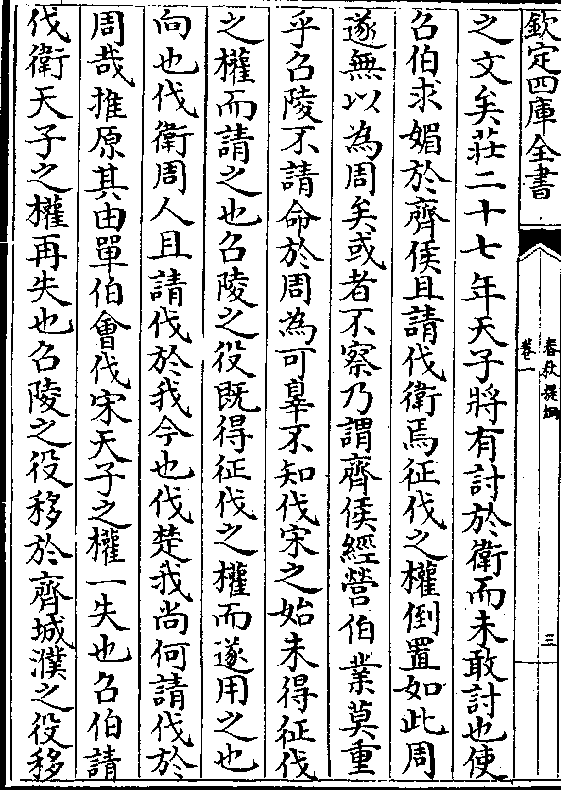 欽定四庫全書
春秋提綱
卷一
三
之文矣莊二十七年天子將有討於衛而未敢討也使
召伯求媚於齊侯且請伐衛焉征伐之權倒置如此周
遂無以為周矣或者不察乃謂齊侯經營伯業莫重
乎召陵不請命於周為可辠不知伐宋之始未得征伐
之權而請之也召陵之役既得征伐之權而遂用之也
向也伐衛周人且請伐於我今也伐楚我尚何請伐於
周哉推原其由單伯會伐宋天子之權一失也召伯請
伐衛天子之權再失也召陵之役移於齊城濮之役移